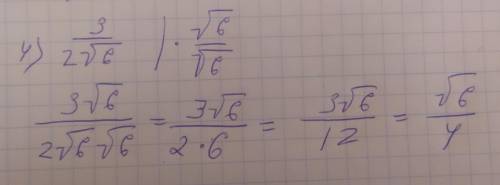 4) 3/(2√6) | · √6/√6
3√6/(2√6√6) = 3√6/(2·6) = 3√6/12 = √6/4